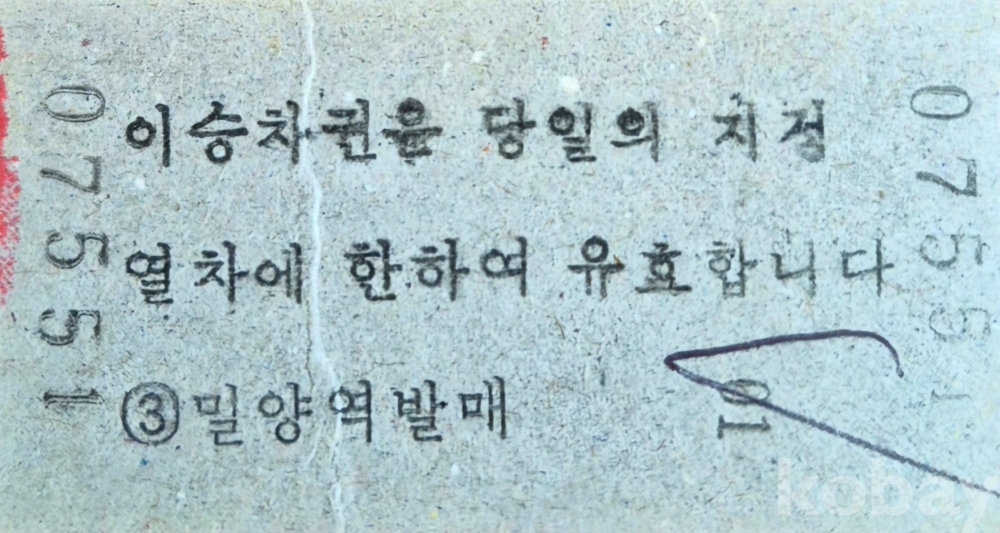 07551
이승차권은 당일의 지정
열차에 한하여 유효합니다
③밀양역발매
01
07551
kobay